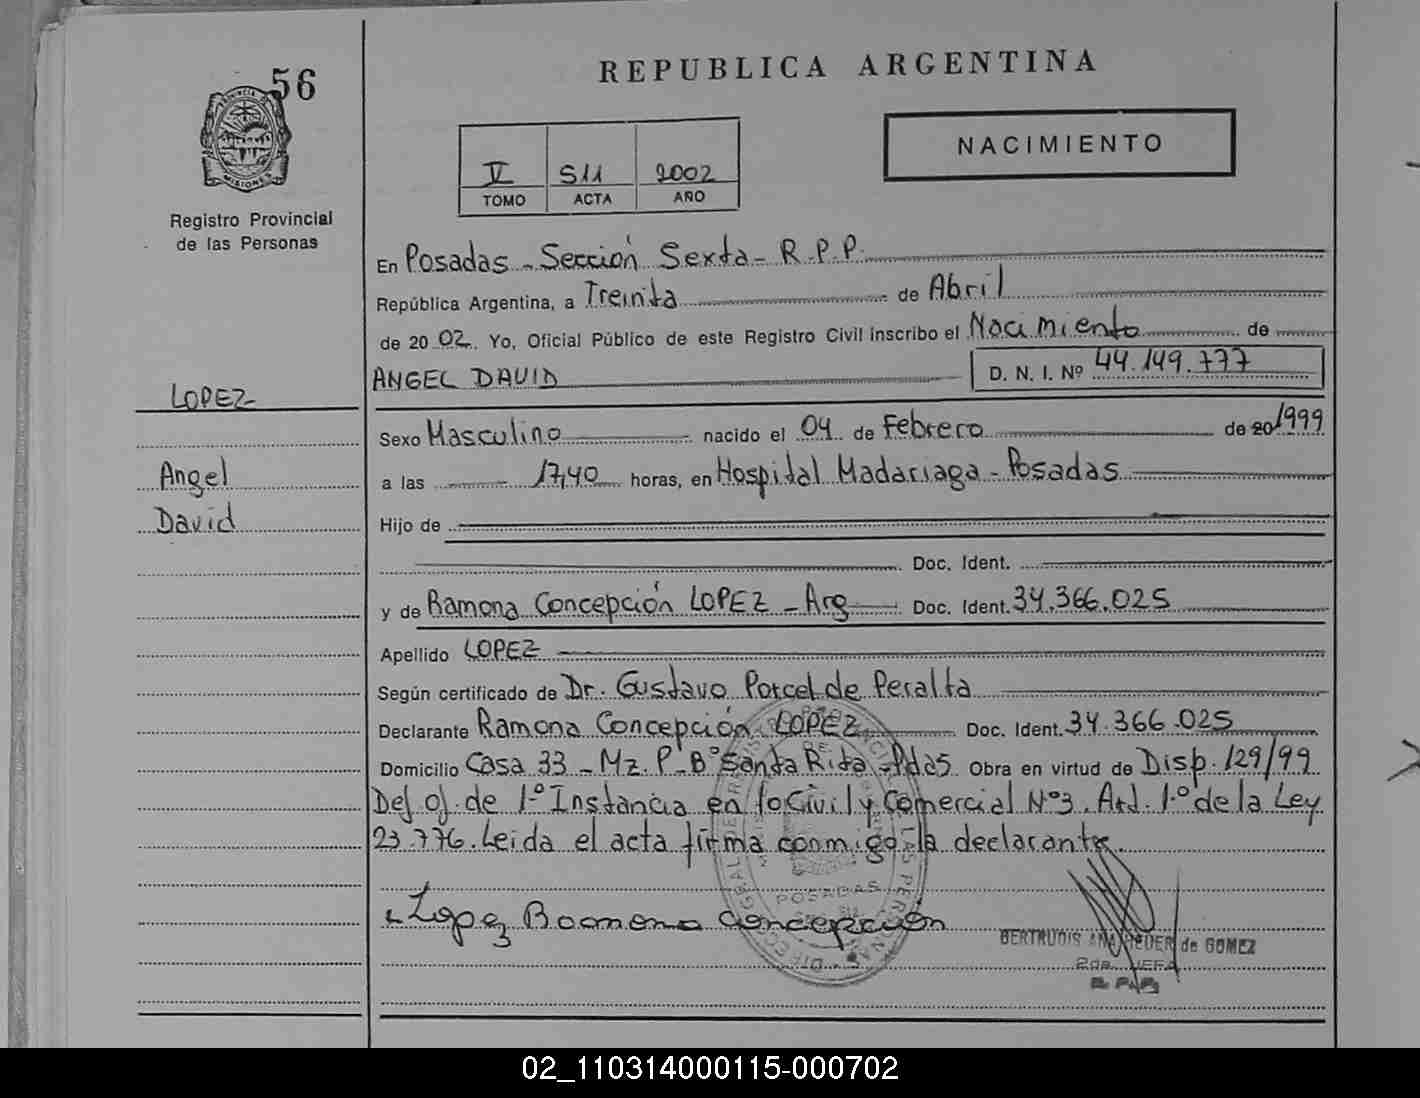 56
REPUBLICA ARGENTINA
PROVINCIA DE
MISIONES
Registro Provincial
de las Personas
V 511 2002
TOMO ACTA AÑO
NACIMIENTO
En Posadas - Sección Sexta - R.P.P.
República Argentina, a Treinta de Abril
de 20 02. Yo, Oficial Público de este Registro Civil inscribo el Nacimiento de
ANGEL DAVID D. N. I. Nº 44.149.777
LOPEZ
Angel
David
Sexo Masculino nacido el 04 de Febrero de 20 1999
a las 17,40 horas, en Hospital Madariaga - Posadas
Hijo de
Doc. Ident.
y de Ramona Concepción LOPEZ - Arg Doc. Ident. 34.366.025
Apellido LOPEZ
Según certificado de Dr. Gustavo Porcel de Peralta
Declarante Ramona Concepción LOPEZ Doc. Ident. 34.366.025
Domicilio Casa 33 - Mz. P - Bº Santa Rita - Pdas Obra en virtud de Disp. 129/99
Def. of. de 1.º Instancia en lo Civil y Comercial Nº3. Art. 1.º de la Ley
23.776. Leida el acta firma conmigo la declarante.
POSADAS
Lopez Ramona Concepción
BERTRUDIS ANA REDER de GOMEZ
2da. JEFA
R.P.P.
02_110314000115-000702